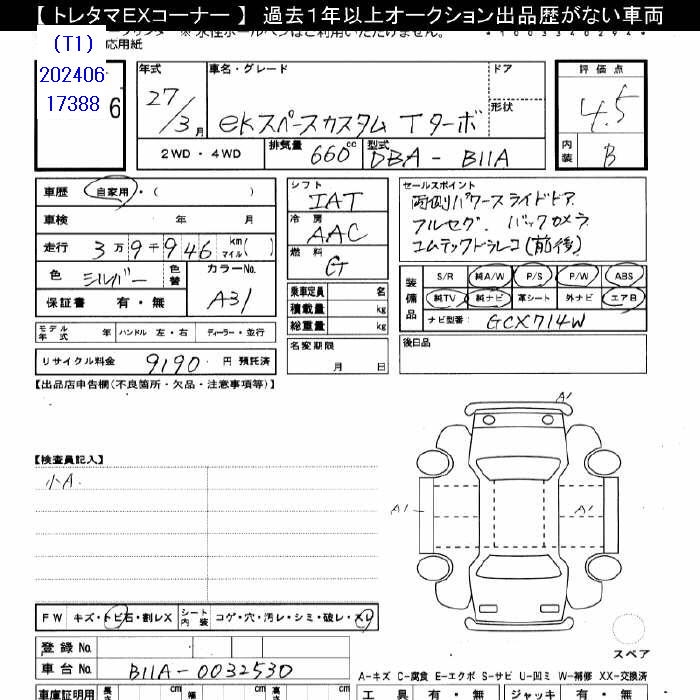 【トレタマEXコーナー】 過去1年以上オークション出品歴がない車両
(T1)
202406
17388
6
応用紙
年式
27/3月
車名・グレード
eKスペースカスタム Tターボ
ドア
形状
評価点
4.5
内装
B
2WD・4WD
排気量 660cc
型式 DBA-B11A
車歴 自家用・( )
車検 年 月
走行 3万9千946 km マイル( )
色 シルバー 色替
カラーNo. A31
保証書 有・無
モデル年式 年 ハンドル 左・右 ディーラー・並行
リサイクル料金 9190 円 預託済
シフト IAT
冷房 AAC
燃料 G
乗車定員 名
積載量 kg
総重量 kg
名変期限
月 日
セールスポイント
両側パワースライドドア
フルセグ バックカメラ
コムテックドラレコ(前後)
装備品
S/R 純A/W P/S P/W ABS
純TV 純ナビ 革シート 外ナビ エアB
ナビ型番: GCX714W
後日品
【出品店申告欄(不良箇所・欠品・注意事項等)】
【検査員記入】
小A
A1
A1
A1
スペア
FW キズ・トビ石・割レX
シート内装 コゲ・穴・汚レ・シミ・破レ・スレ
登録No.
車台No. B11A-0032530
A-キズ C-腐食 E-エクボ S-サビ U-凹ミ W-補修 XX-交換済
車庫証明用 長さ cm 幅 cm 高さ cm
工具 有・無 ジャッキ 有・無